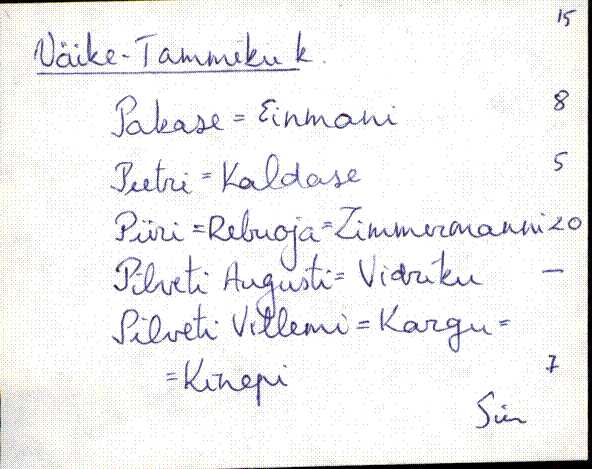 15
Väike-Tammiku k.
Pakase = Einmani 8
Peetri = Kaldase 5
Piiri = Rebuoja = Zimmermanni 20
Pilveti Augusti = Vidriku —
Pilveti Villemi = Kargu =
= Kinepi 7